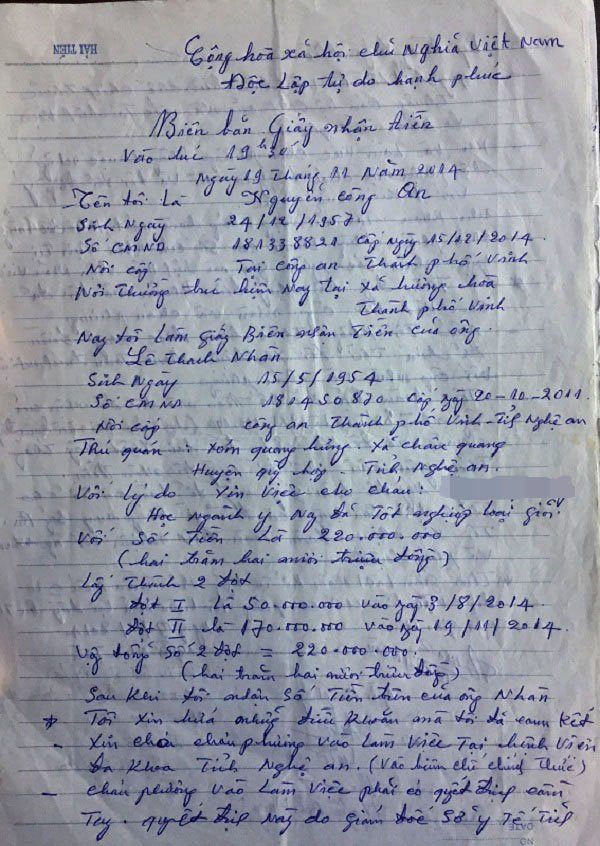 HẢI TIẾN
Cộng hoà xã hội chủ Nghĩa Việt Nam
Độc Lập tự do hạnh phúc
Biên bản Giấy nhận tiền
Vào lúc 19h30'
Ngày 19 tháng 11 Năm 2014
- Tên tôi Là Nguyễn Công An
Sinh Ngày 24/12/1957
Số CMND 181338821 Cấp Ngày 15/12/2014.
Nơi cấp Tại Công an Thành phố Vinh
Nơi thường trú hiện Nay tại xã hưng hoà
Thành phố Vinh
Nay tôi Làm giấy Biên nhận Tiền của ông.
Lê Thanh Nhàn
Sinh Ngày 15/5/1954.
Số CMND 181450870 Cấp ngày 20-10-2011
Nơi cấp công an Thành phố Vinh-Tỉnh Nghệ an
Trú quán : Xóm quang hưng. Xã châu quang
Huyện quỳ hợp. Tỉnh Nghệ an.
Với Lý do Xin Việc cho cháu:
Học Ngành y Nay đã Tốt nghiệp loại giỏi
Với Số Tiền Là 220.000.000
(hai trăm hai mươi triệu đồng)
Lấy Thành 2 đợt
đợt I Là 50.000.000 vào ngày 3/8/2014.
đợt II là 170.000.000 vào ngày 19/11/2014.
Vậy tổng số 2 đợt = 220.000.000.
(hai trăm hai mươi triệu đồng)
Sau khi tôi nhận Số Tiền trên của ông Nhàn
* Tôi xin hứa những điều khoản mà tôi đã cam kết
- Xin cho cháu phương vào Làm Việc Tại bệnh Viện
Đa Khoa Tỉnh Nghệ an. (Vào biên chế chính thức)
- cháu phương vào Làm Việc phải có quyết định cầm
Tay. quyết định Này do giám đốc Sở y Tế Tỉnh
DATE
NO